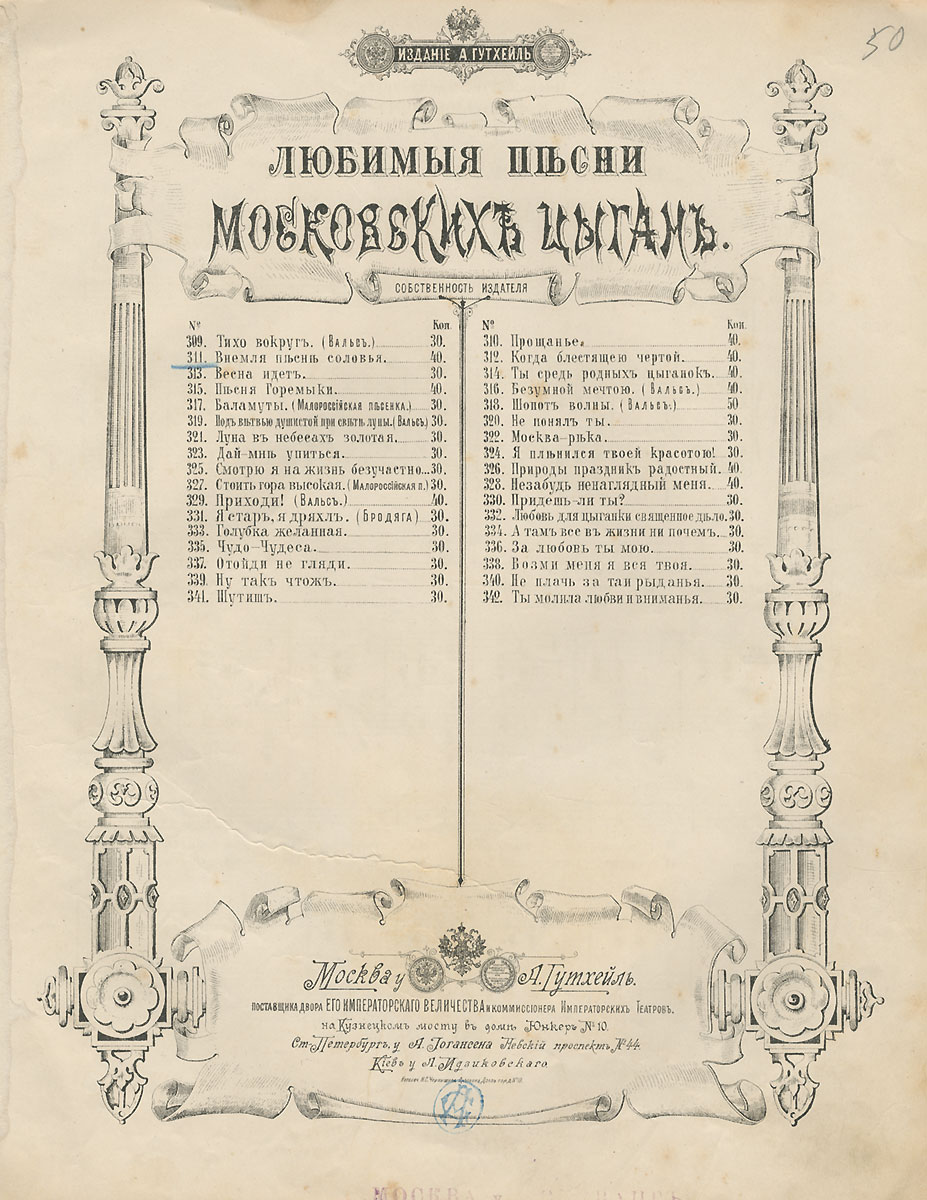 50
ИЗДАНІЕ А. ГУТХЕЙЛЬ
ЛЮБИМЫЯ ПѢСНИ
МОСКОВСКИХЪ ЦЫГАНЪ.
СОБСТВЕННОСТЬ ИЗДАТЕЛЯ
№ Коп.
309. Тихо вокругъ. (Вальсъ.) 30.
311. Внемля пѣснѣ соловья. 40.
313. Весна идетъ. 30.
315. Пѣсня Горемыки. 40.
317. Баламуты. (Малороссійская пѣсенка.) 30.
319. Подъ вѣтвью душистой при свѣтѣ луны. (Вальсъ) 30.
321. Луна въ небесахъ золотая. 30.
323. Дай-мнѣ упиться. 30.
325. Смотрю я на жизнь безучастно... 30.
327. Стоитъ гора высокая. (Малороссійская п.) 30.
329. Приходи! (Вальсъ.) 40.
331. Я старъ, я дряхлъ. (Бродяга) 30.
333. Голубка желанная. 30.
335. Чудо-Чудеса. 30.
337. Отойди не гляди. 30.
339. Ну такъ чтожъ. 30.
341. Шутишь. 30.
№ Коп.
310. Прощанье. 40.
312. Когда блестящею чертой. 40.
314. Ты средь родныхъ цыганокъ. 40.
316. Безумной мечтою. (Вальсъ.) 40.
318. Шопотъ волны. (Вальсъ.) 50
320. Не понялъ ты. 30.
322. Москва-рѣка. 30.
324. Я плѣнился твоей красотою! 30.
326. Природы праздникъ радостный. 40.
328. Незабудь ненаглядный меня. 40.
330. Придешь-ли ты? 30.
332. Любовь для цыганки священное дѣло. 30.
334. А тамъ все въ жизни ни почемъ. 30.
336. За любовь ты мою. 30.
338. Возми меня я вся твоя. 30.
340. Не плачь за таи рыданья. 30.
342. Ты молила любви и вниманья. 30.
Москва у А. Гутхейль.
ПОСТАВЩИКА ДВОРА ЕГО ИМПЕРАТОРСКАГО ВЕЛИЧЕСТВА И КОММИССІОНЕРА ИМПЕРАТОРСКИХЪ ТЕАТРОВЪ.
на Кузнецкомъ мосту въ домѣ Юнкеръ № 10.
Ст-Петербургъ, у А. Іогансена Невскій проспектъ, № 44.
Кіевъ у Л. Идзиковскаго.
МОСКВА